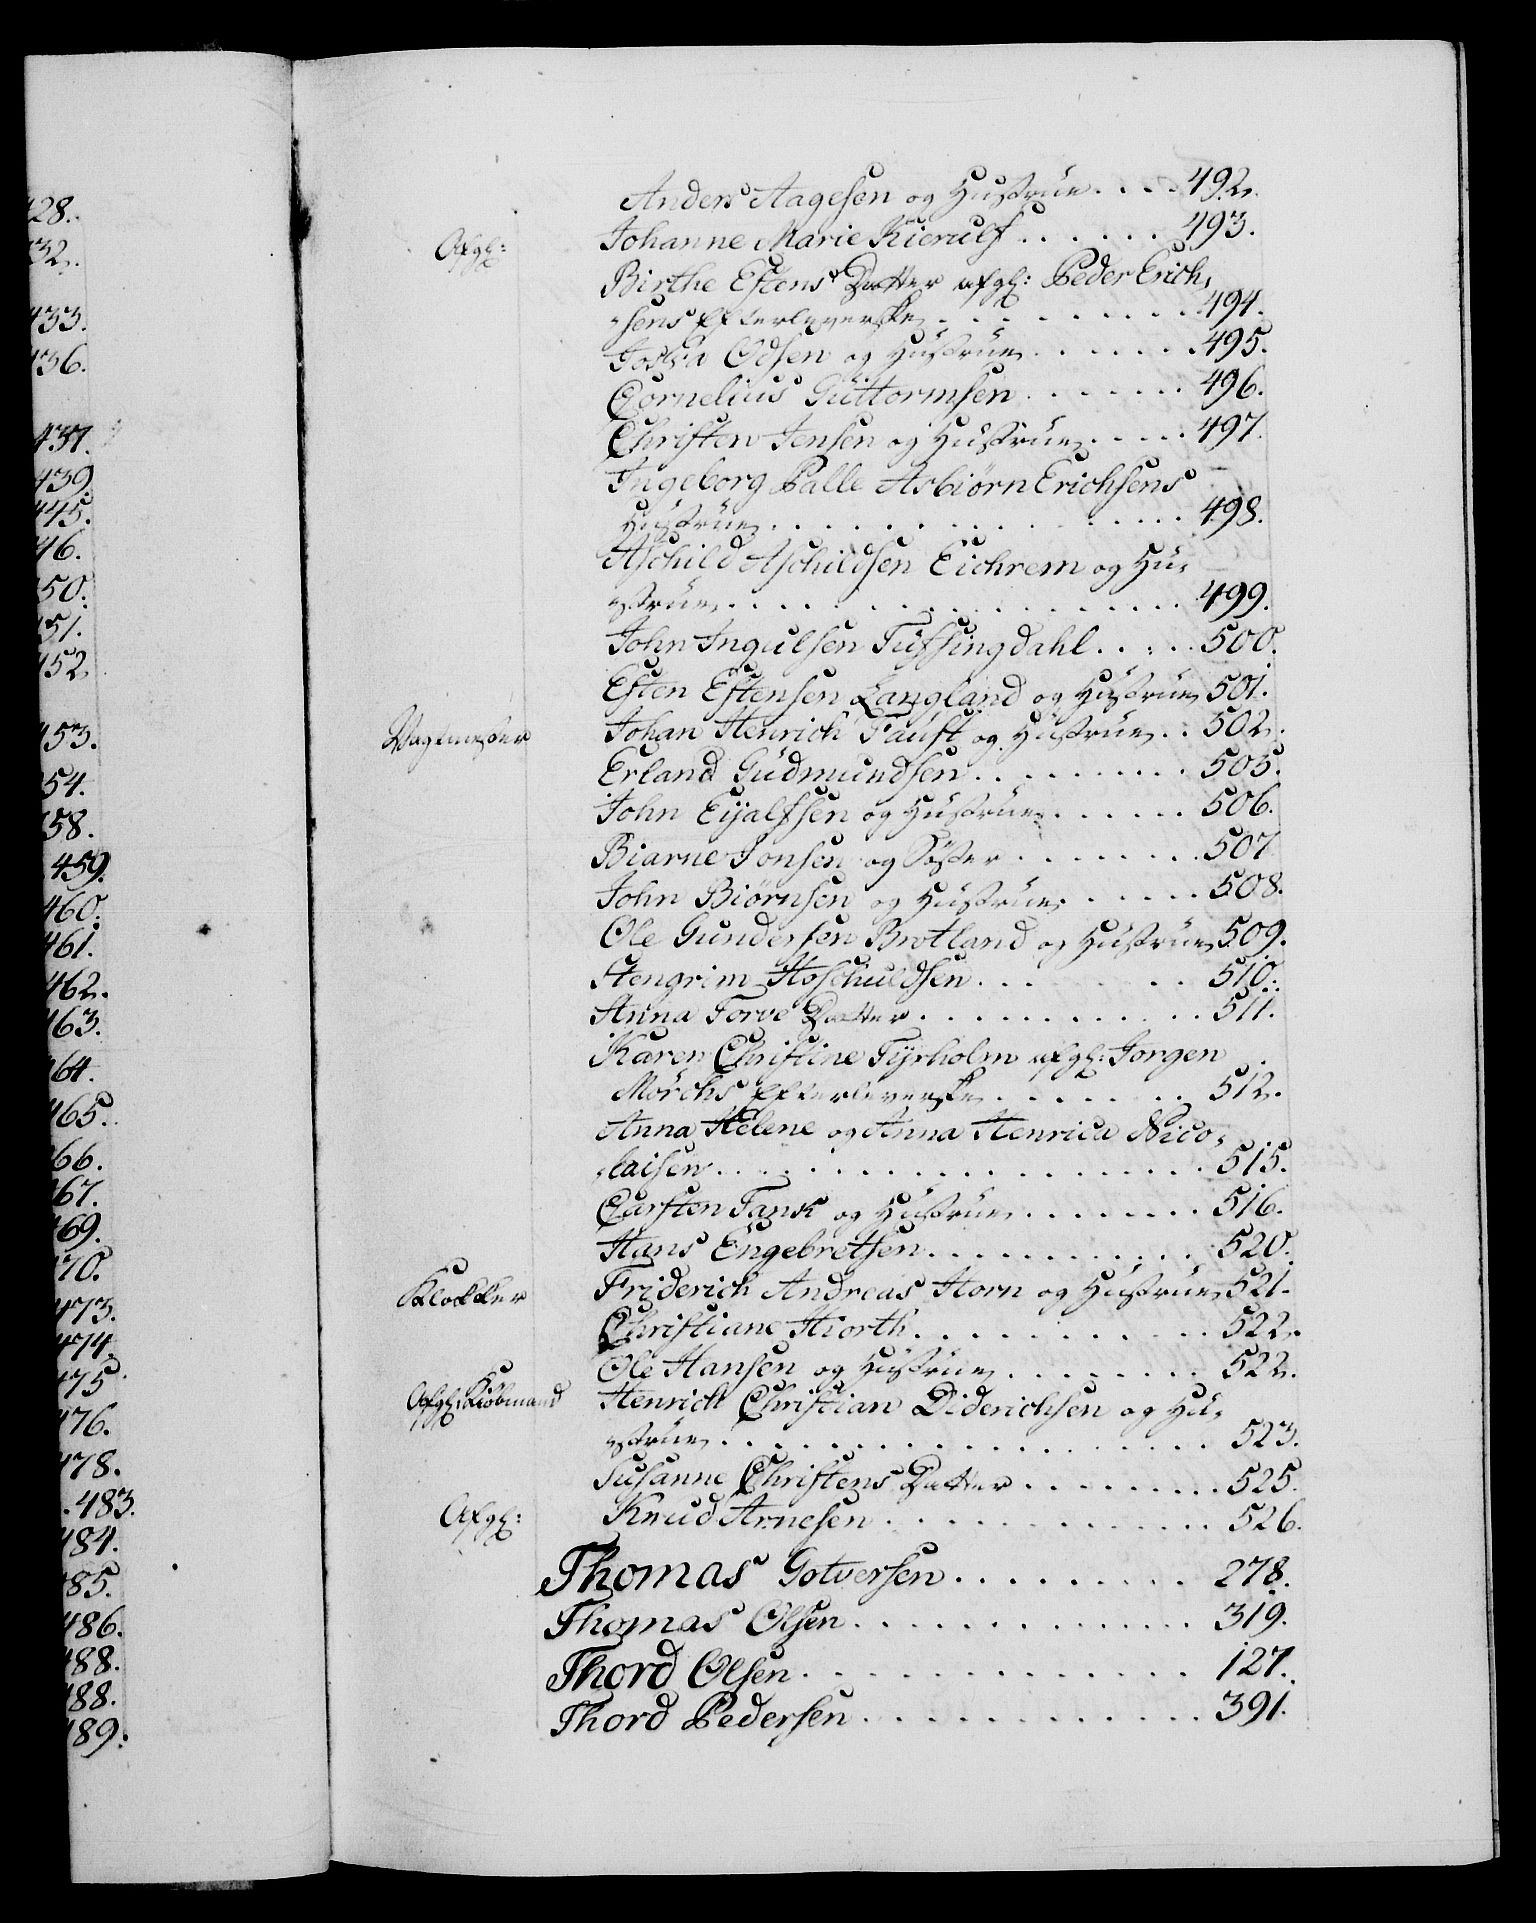 428.
432.
433.
436.
437.
439.
445.
446.
450.
451.
452
453.
454.
458.
459.
460.
461.
462.
463.
464.
465.
466.
467.
469.
470.
473.
474.
475
476.
478.
483.
484.
485.
486.
488.
488.
489.
Anders Aagesen og Hustrue . . . . 492.
Afgl: Johanne Marie Kierulf . . . . . . 493.
Birthe Estens Datter afgl: Peder Erich-
-sens Efterleverske . . . . . . . . . 494.
Josva Odsen og Hustrue . . . . . . 495.
Cornelius Guttormsen . . . . . . . 496.
Christen Jensen og Hustrue . . . . . 497.
Ingeborg Palle Asbiørn Erichsens
Hustrue . . . . . . . . . . . . . . 498.
Aschild Aschildsen Eichrem og Hu-
-strue . . . . . . . . . . . . . . . 499.
John Ingulsen Tufsingdahl . . . . . 500.
Esten Estensen Langland og Hustrue 501.
Vagtmester Johan Henrich Faust og Hustrue . . 502.
Erland Gudmundsen . . . . . . . . . 505.
John Eyjalfsen og Hustrue . . . . . . 506.
Biarne Jonsen og Søster . . . . . . . 507
John Biørnsen og Hustrue . . . . . . 508.
Ole Gundersen Brotland og Hustrue 509.
Stengrim Hoschuldsen . . . . . . . . 510.
Anna Torve Datter . . . . . . . . . . 511.
Karen Christine Tyrholm afgl: Jorgen
Mörchs Efterleverske . . . . . . . . 512.
Anna Helene og Anna Henrica Nico-
-laisen . . . . . . . . . . . . . . . 515.
Carsten Tank og Hustrue . . . . . . . 516.
Hans Engebretsen . . . . . . . . . . 520.
Klokker Friderich Andreas Horn og Hustrue 521.
Christiane Hiorth . . . . . . . . . . 522.
Ole Hansen og Hustrue . . . . . . . . 522.
Afgl: Kiöbmand Henrich Christian Diderichsen og Hu-
-strue . . . . . . . . . . . . . . . 523.
Susanne Christens Datter . . . . . . . 525.
Afgl: Knud Arnesen . . . . . . . . . . . . 526.
Thomas Gotversen . . . . . . . . . 278.
Thomas Olsen . . . . . . . . . . . . 319.
Thord Olsen . . . . . . . . . . . . . 127.
Thord Pedersen . . . . . . . . . . . 391.